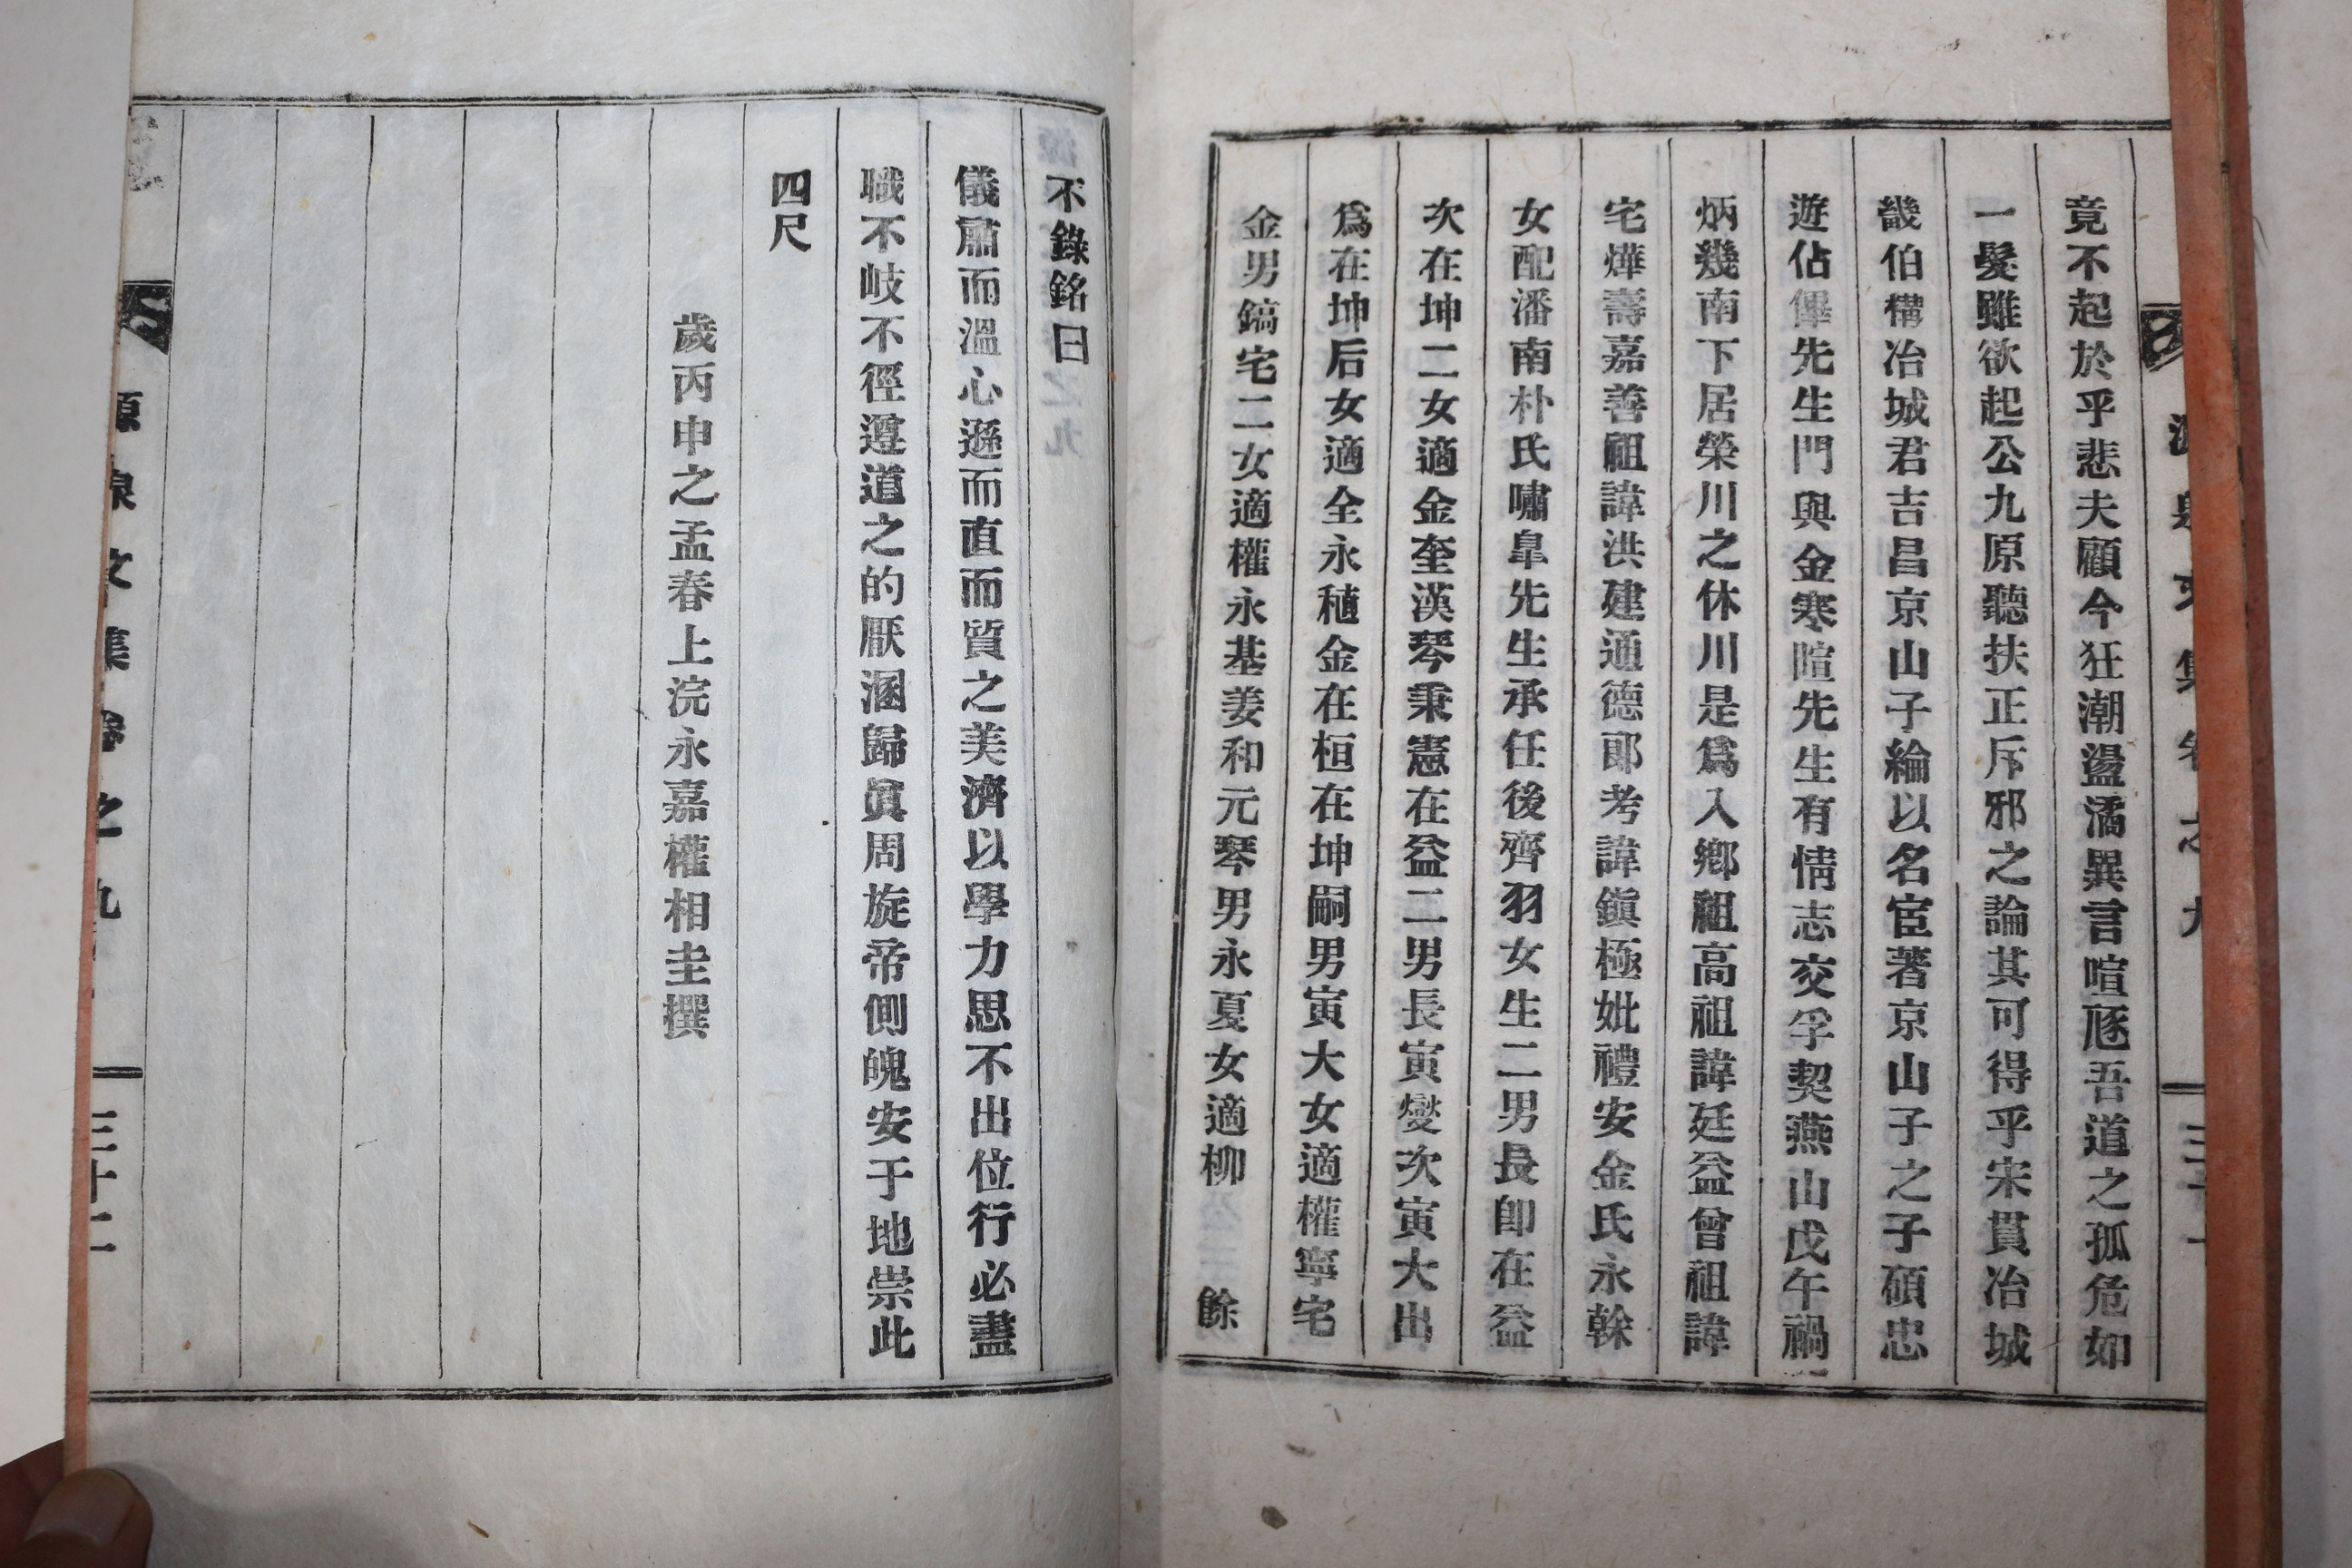 竟不起於乎悲夫顧今狂潮盪潏異言喧豗吾道之孤危如
一髮雖欲起公九原聽扶正斥邪之論其可得乎宋貫冶城
畿伯構冶城君吉昌京山子綸以名宦著京山子之子碩忠
遊佔畢先生門與金寒暄先生有情志交孚契燕山戊午禍
炳幾南下居榮川之休川是爲入鄕祖高祖諱廷益曾祖諱
宅燁壽嘉善祖諱洪建通德郞考諱鎭極妣禮安金氏永榦
女配潘南朴氏嘯皐先生承任後齊羽女生二男長卽在益
次在坤二女適金奎漢琴秉憲在益二男長寅燮次寅大出
爲在坤后女適全永稙金在桓在坤嗣男寅大女適權寧宅
金男鎬宅二女適權永基姜和元琴男永夏女適柳 餘
不錄銘曰
儀肅而溫心遜而直而質之美濟以學力思不出位行必盡
職不岐不徑遵道之的厭溷歸眞周旋帝側魄安于地崇此
四尺
歲丙申之孟春上浣永嘉權相圭撰
源泉文集卷之九
三十二